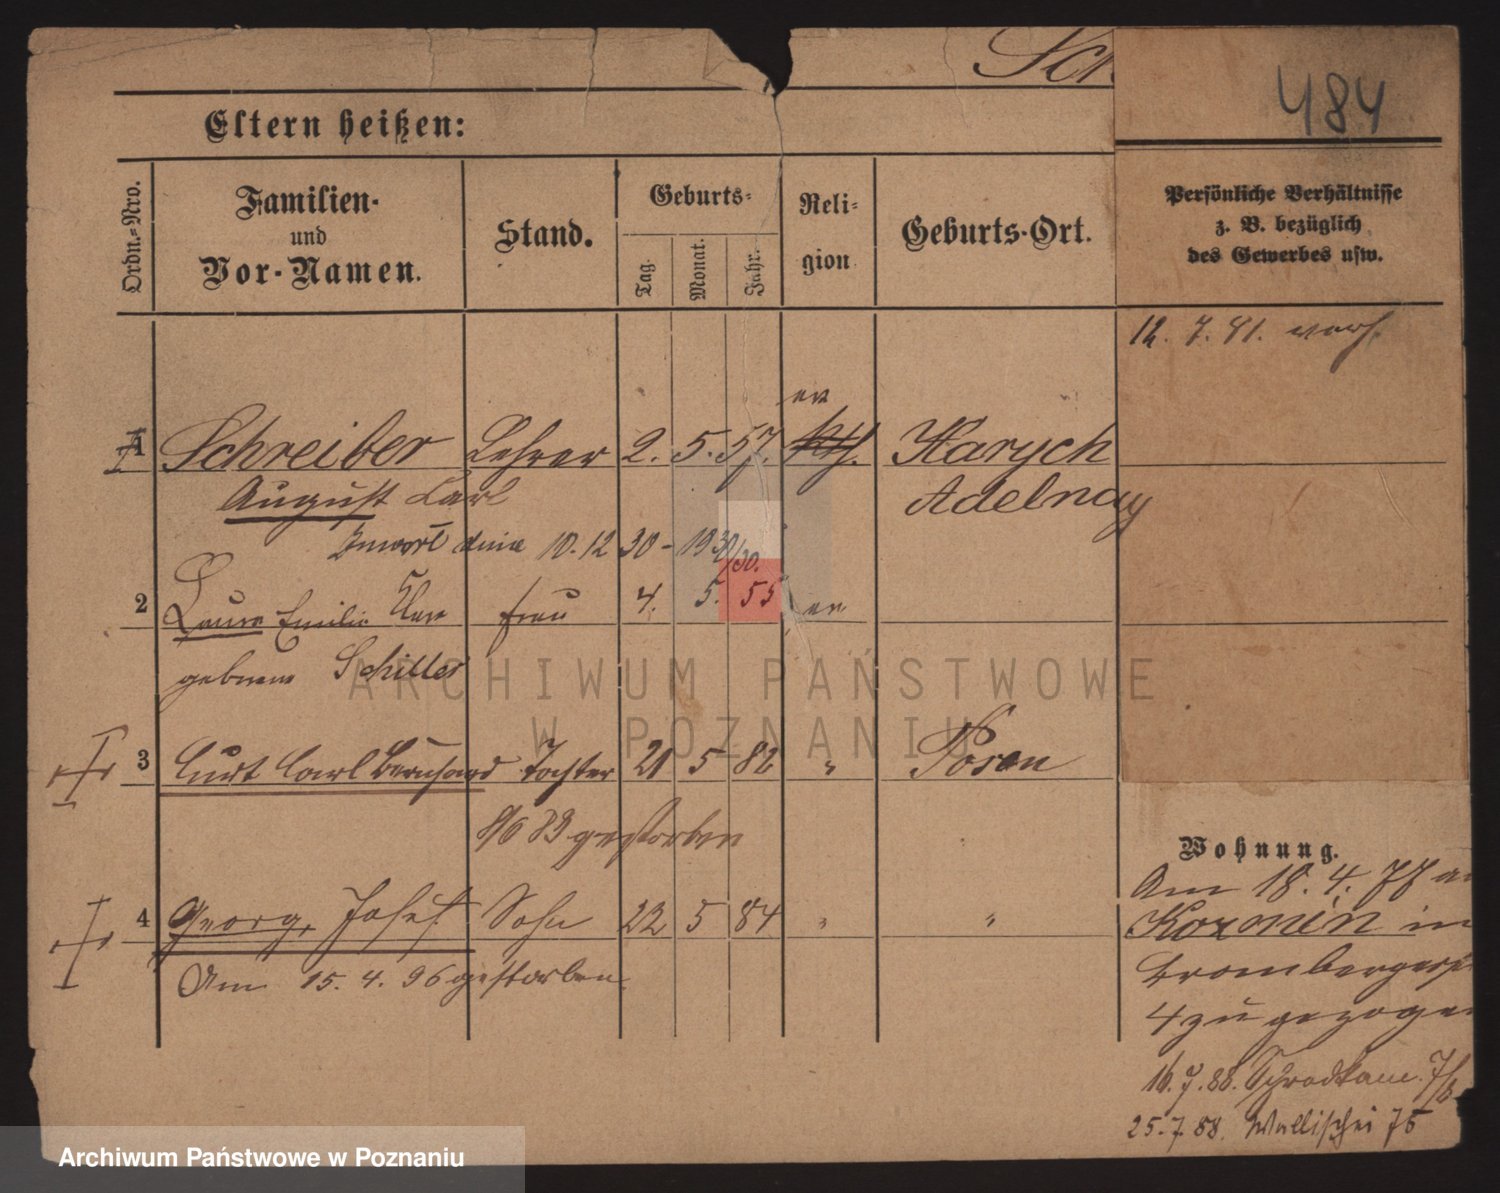 Sch
484
Eltern heißen:
Ordn.-Nro.
Familien-
und
Vor-Namen.
Stand.
Geburts-
Tag.
Monat.
Jahr.
Reli-
gion
Geburts-Ort.
Persönliche Verhältnisse
z. B. bezüglich
des Gewerbes usw.
12. 7. 81. verh.
ev
1 Schreiber Lehrer 2. 5. 57. kth. Karych
August Carl Adelnay
dnia 10. 12 30 - 1930/30.
2 Laura Emilie Frau 4. 5. 55 ev
geborene Schiller
3 Curt Carl Bernhard Tochter 21 5 82 " Posen
8/6 83 gestorben
4 Georg, Josef Sohn 22 5 84 " "
Am 15. 4. 96 gestorben.
Wohnung.
Am 18. 4. 77 a
Kozmin in
Brombergerst
4 zu gezogen
16. 7. 88. Schrodkam. 7/8
25. 7. 88. Wallischei 75
ARCHIWUM PAŃSTWOWE
W POZNANIU
Archiwum Państwowe w Poznaniu